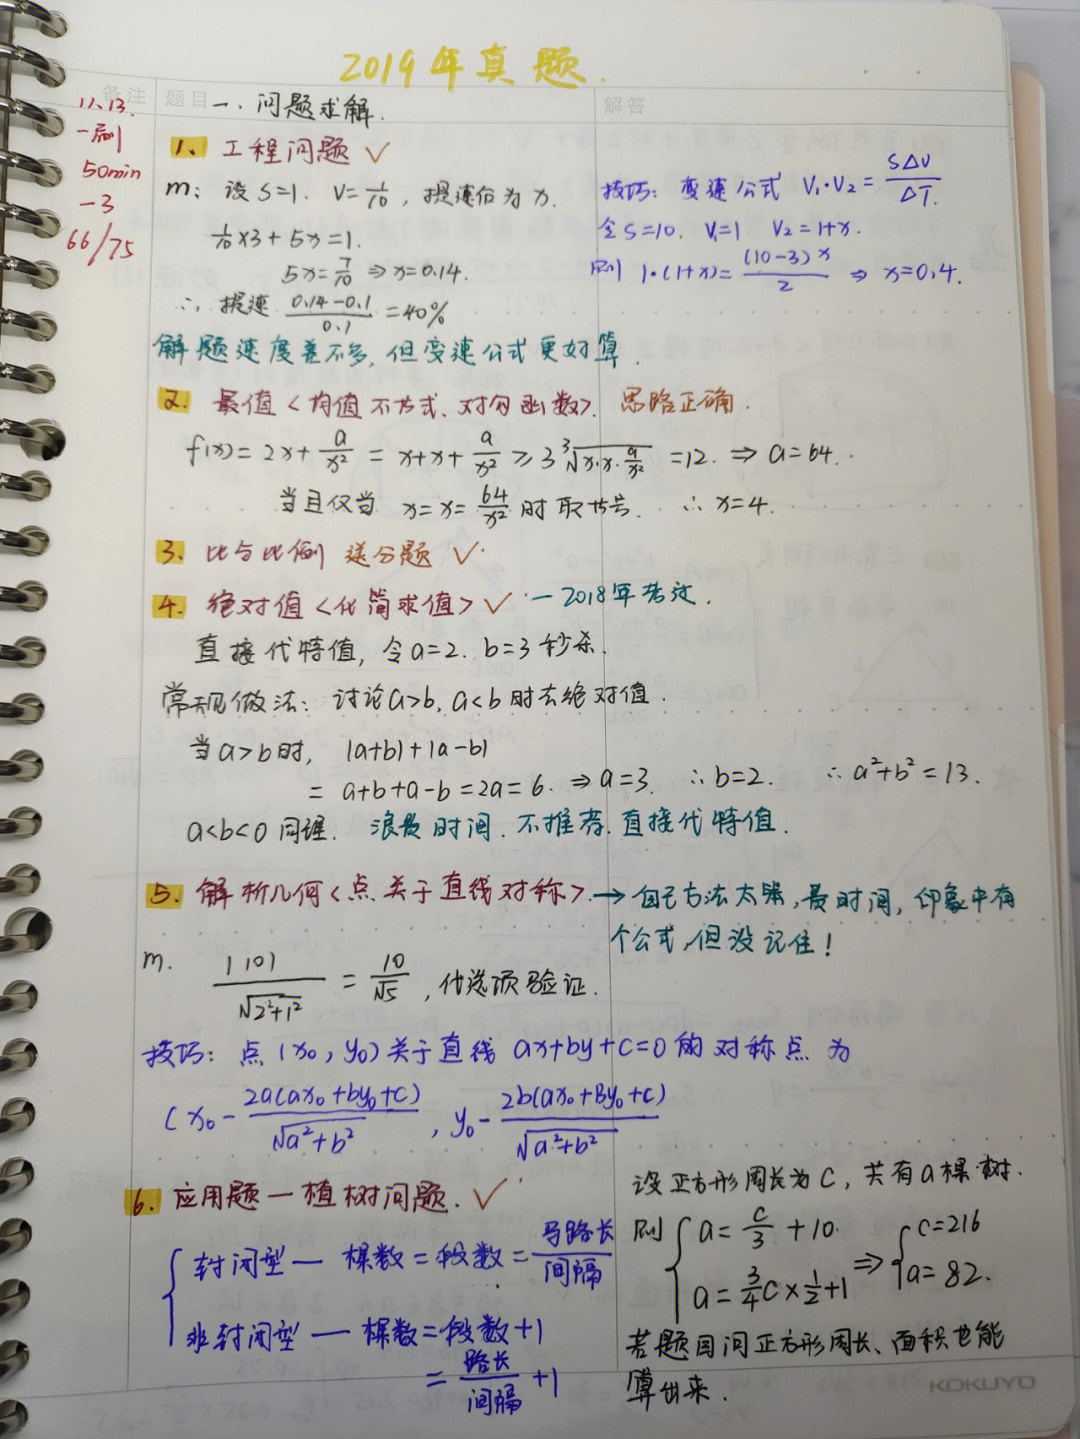 2019年真题.
备注
题目
解答
11.13.
一刷
50min
-3
66/75
一.问题求解.
1. 工程问题 ✓
m: 设S=1. V=1/10, 提速后为x.
1/10×3+5x=1.
5x=7/10 ⇒ x=0.14.
∴ 提速 (0.14-0.1)/0.1 =40%
技巧: 变速公式 V₁·V₂= SΔV/ΔT.
令S=10. V₁=1 V₂=1+x.
则 1·(1+x)= (10-3)x/2 ⇒ x=0.4.
解题速度差不多,但变速公式更好算.
2. 最值<均值不等式、对勾函数>. 思路正确.
f(x)=2x+a/x² = x+x+a/x² ≥ 3∛(x·x·a/x²) =12. ⇒ a=64.
当且仅当 x=x=64/x² 时取等号. ∴ x=4.
3. 比与比例 送分题 ✓
4. 绝对值<化简求值> ✓ —2018年考过.
直接代特值,令a=2. b=3 秒杀.
常规做法: 讨论a>b, a<b时去绝对值.
当a>b时, |a+b|+|a-b|
= a+b+a-b=2a=6. ⇒ a=3. ∴b=2. ∴ a²+b²=13.
a<b<0同理. 浪费时间. 不推荐. 直接代特值.
5. 解析几何<点关于直线对称>. → 自己方法太笨,费时间,印象中有
个公式,但没记住!
m. |10|/√(2²+1²) = 10/√5 ,代选项验证.
技巧: 点(x₀, y₀)关于直线 ax+by+c=0的对称点为
(x₀- 2a(ax₀+by₀+c)/√(a²+b²) , y₀- 2b(ax₀+By₀+c)/√(a²+b²)
6. 应用题—植树问题. ✓
{ 封闭型— 棵数=段数= 马路长/间隔
非封闭型— 棵数=段数+1
= 路长/间隔 +1
设正方形周长为C, 共有a棵树.
则 { a= c/3 +10.
a= 3/4 c×1/2+1 ⇒ { c=216
a=82.
若题目问正方形周长、面积也能
算出来.
KOKUYO